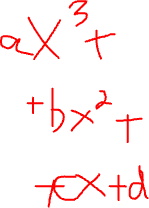 ax³+
+bx²+
+cx+d